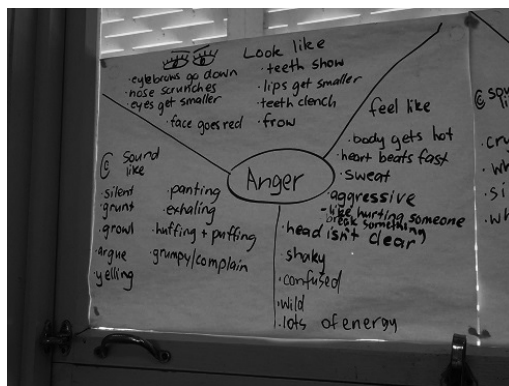 Look like
eyebrows go down
nose scrunches
eyes get smaller
face goes red
teeth show
lips get smaller
teeth clench
frow
feel like
body gets hot
heart beats fast
sweat
aggressive
- like hurting someone
break something
head isn't clear
shaky
confused
wild
lots of energy
Sound
like
silent
grunt
growl
Argue
yelling
panting
exhaling
huffing + puffing
grumpy/complain
Anger